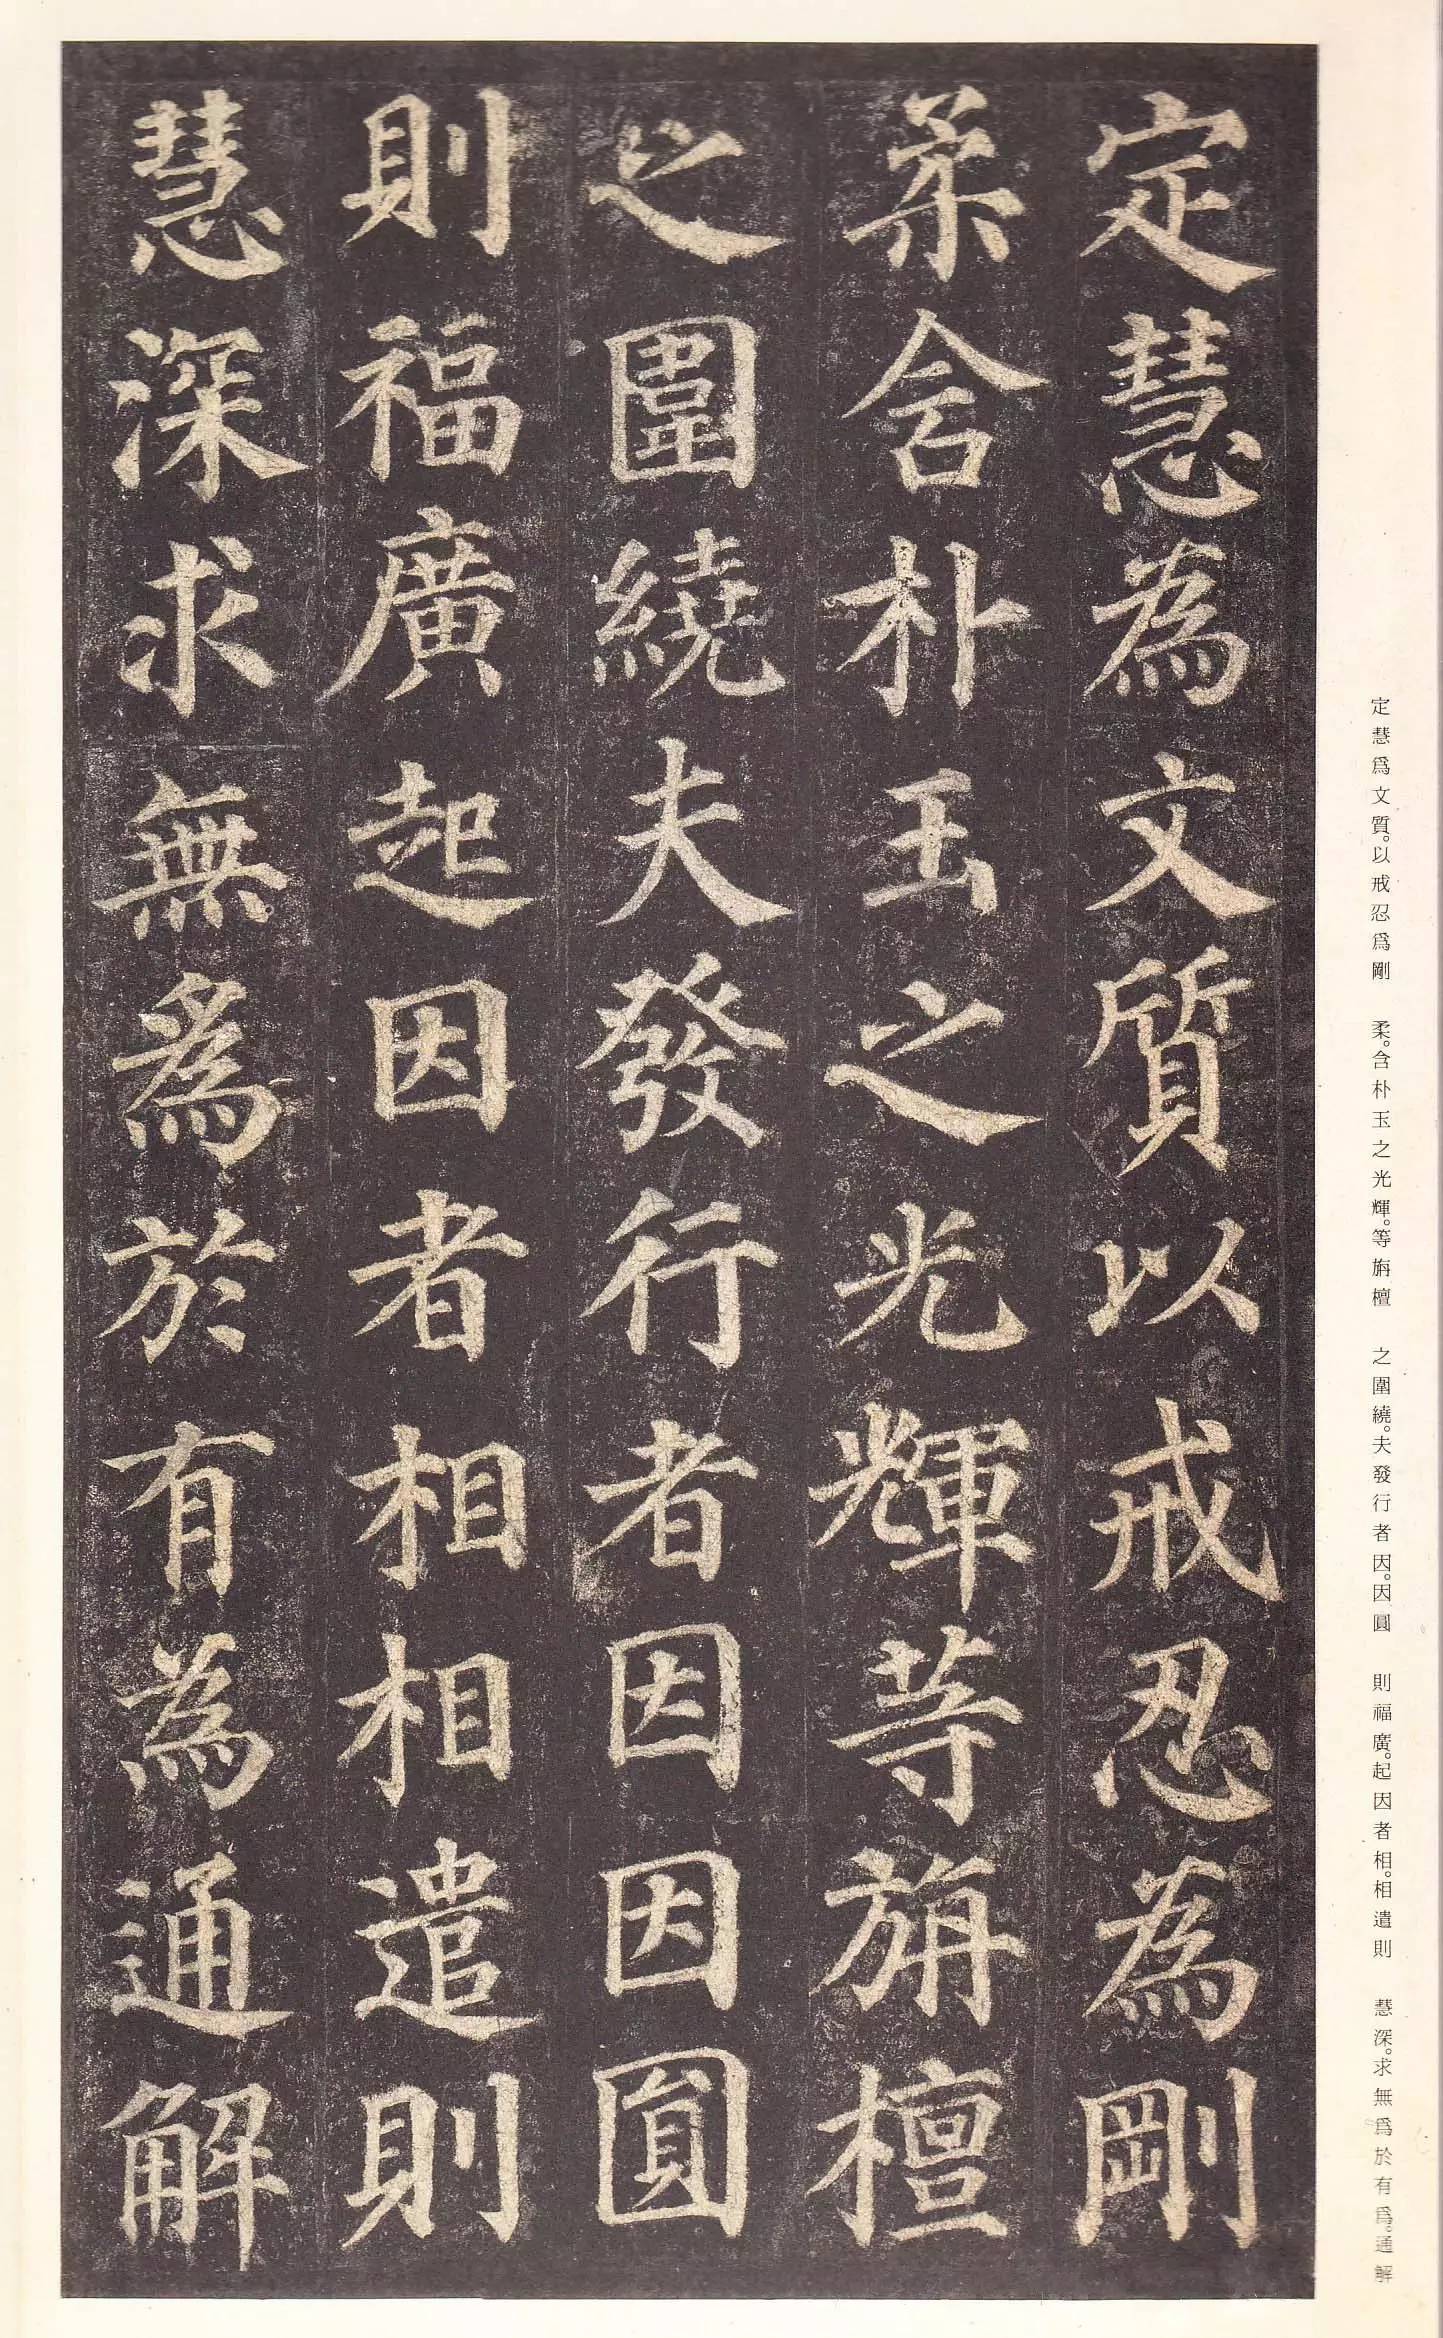 定慧為文質以戒忍為剛
柔含朴玉之光輝等旃檀
之圍繞夫發行者因因圓
則福廣起因者相相遣則
慧深求無為於有為通解
定慧爲文質。以戒忍爲剛　柔。含朴玉之光輝。等旃檀　之圍繞。夫發行者因。因圓　則福廣。起因者相。相遣則　慧深。求無爲於有爲。通解